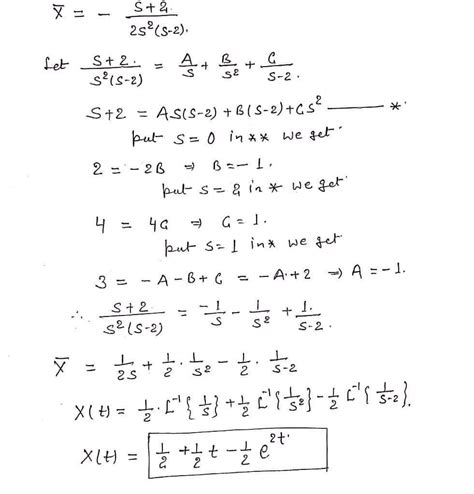 X̄ = - S+2 / 2S²(S-2).
Let S+2. / S²(S-2) = A/S + B/S² + C/S-2.
S+2 = AS(S-2) + B(S-2) + CS² ——— *.
put S = 0 in ** we get.
2 = -2B ⇒ B = -1.
put S = 2 in * we get.
4 = 4C ⇒ C = 1.
put S = 1 in * we get.
3 = -A-B+C = -A+2 ⇒ A = -1.
∴ S+2 / S²(S-2) = -1/S - 1/S² + 1./S-2.
X̄ = 1/2S + 1/2 · 1/S² - 1/2 · 1/S-2
X(t) = 1/2 · L⁻¹{1/S} + 1/2 L⁻¹{1/S²} - 1/2 L⁻¹{1/S-2}.
X(t) = 1/2 + 1/2 t - 1/2 e^2t.